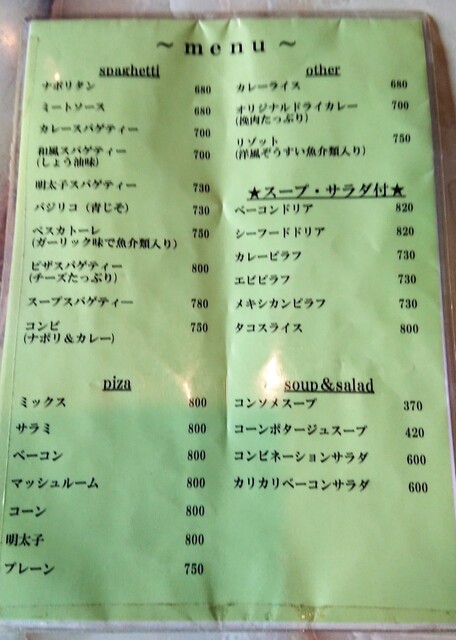 ～menu～
spaghetti
ナポリタン 680
ミートソース 680
カレースパゲティー 700
和風スパゲティー 700
(しょう油味)
明太子スパゲティー 730
バジリコ（青じそ） 730
ペスカトーレ 750
(ガーリック味で魚介類入り)
ピザスパゲティー 800
(チーズたっぷり)
スープスパゲティー 780
コンビ 750
(ナポリ＆カレー)
piza
ミックス 800
サラミ 800
ベーコン 800
マッシュルーム 800
コーン 800
明太子 800
プレーン 750
other
カレーライス 680
オリジナルドライカレー 700
(挽肉たっぷり)
リゾット 750
(洋風ぞうすい魚介類入り)
★スープ・サラダ付★
ベーコンドリア 820
シーフードドリア 820
カレーピラフ 730
エビピラフ 730
メキシカンピラフ 730
タコスライス 800
soup&salad
コンソメスープ 370
コーンポタージュスープ 420
コンビネーションサラダ 600
カリカリベーコンサラダ 600